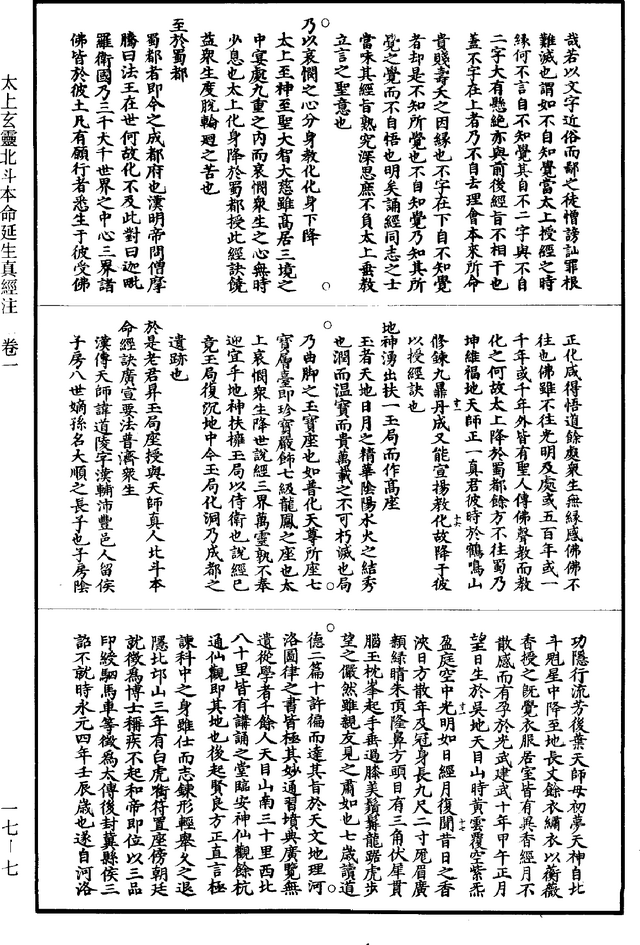 哉若以文字近俗而鄙之徒憎謗訕罪根
難滅也謂如不自知覺當太上授經之時
緣何不言自不知覺其自不二字與不自
二字大有懸絕亦與前後經旨不相干也
蓋不字在上者乃不自去理會本來所命
貴賤壽夭之因緣也不字在下自不知覺
者却是不知所覺也不自知覺乃知其所
覺之覺而不自悟也明矣誦經同志之士
當味其經旨熟究深思庶不負太上垂教
立言之聖意也
乃以哀憫之心分身教化化身下降
太上至神至聖大智大慈雖高居三境之
中宴處九重之內而哀憫衆生之心無時
少息也太上化身降於蜀都授此經訣饒
益衆生度脫輪廻之苦也
至於蜀都
蜀都者即今之成都府也漢明帝問僧摩
騰曰法王在世何故化不及此對曰迦毗
羅衛國乃三千大千世界之中心三界諸
佛皆於彼土凡有願行者悉生于彼受佛
正化咸得悟道餘處衆生無緣感佛佛不
往也佛雖不往光明及處或五百年或一
千年或千年外皆有聖人傳佛聲教而教
化之何故太上降於蜀都餘方不往蜀乃
坤維福地天師正一真君彼時於鶴鳴山
修鍊九鼎丹成又能宣揚教化故降于彼
以授經訣也
地神湧出扶一玉局而作高座
玉者天地日月之精華陰陽水火之結秀
也潤而溫寶而貴萬載之不可朽滅也局
乃曲脚之玉寶座也如普化天尊所座七
寶層臺即珍寶嚴飾七級龍鳳之座也太
上哀憫衆生降世說經三界萬靈孰不奉
迎宜乎地神扶擁玉局以侍衛也說經已
竟玉局復沉地中今玉局化洞乃成都之
遺跡也
於是老君昇玉局座授與天師真人北斗本
命經訣廣宣要法普濟衆生
漢傳天師諱道陵字漢輔沛豐邑人留侯
子房八世嫡孫名大順之長子也子房陰
功隱行流芳後葉天師母初夢天神自北
斗魁星中降至地長丈餘衣繡衣以蘅薇
香授之既覺衣服居室皆有異香經月不
散感而有孕於光武建武十年甲午正月
望日生於吳地天目山時黃雲覆空紫炁
盈庭空中光明如日經月復聞昔日之香
浹日方散年及冠身長九尺二寸厖眉廣
顙綠睛朱頂隆鼻方頤目有三角伏犀貫
腦玉枕峯起手垂過膝美鬚髯龍踞虎步
望之儼然雖親友見之肅如也七歲讀道
德二篇十許徧而達其旨於天文地理河
洛圖律之書皆極其妙通習墳典廣覽無
遺從學者千餘人天目山南三十里西北
八十里皆有講誦之堂臨安神仙觀餘杭
通仙觀即其地也後起賢良方正直言極
諫科中之身雖仕而志鍊形輕舉久之退
隱北邙山三年有白虎銜符置座傍朝廷
就徵爲博士稱疾不起和帝即位以三品
印綬駟馬車等徵爲太傅後封冀縣侯三
詔不就時永元四年壬辰歲也遂自河洛
太上玄靈北斗本命延生真經注 卷一
一七—七